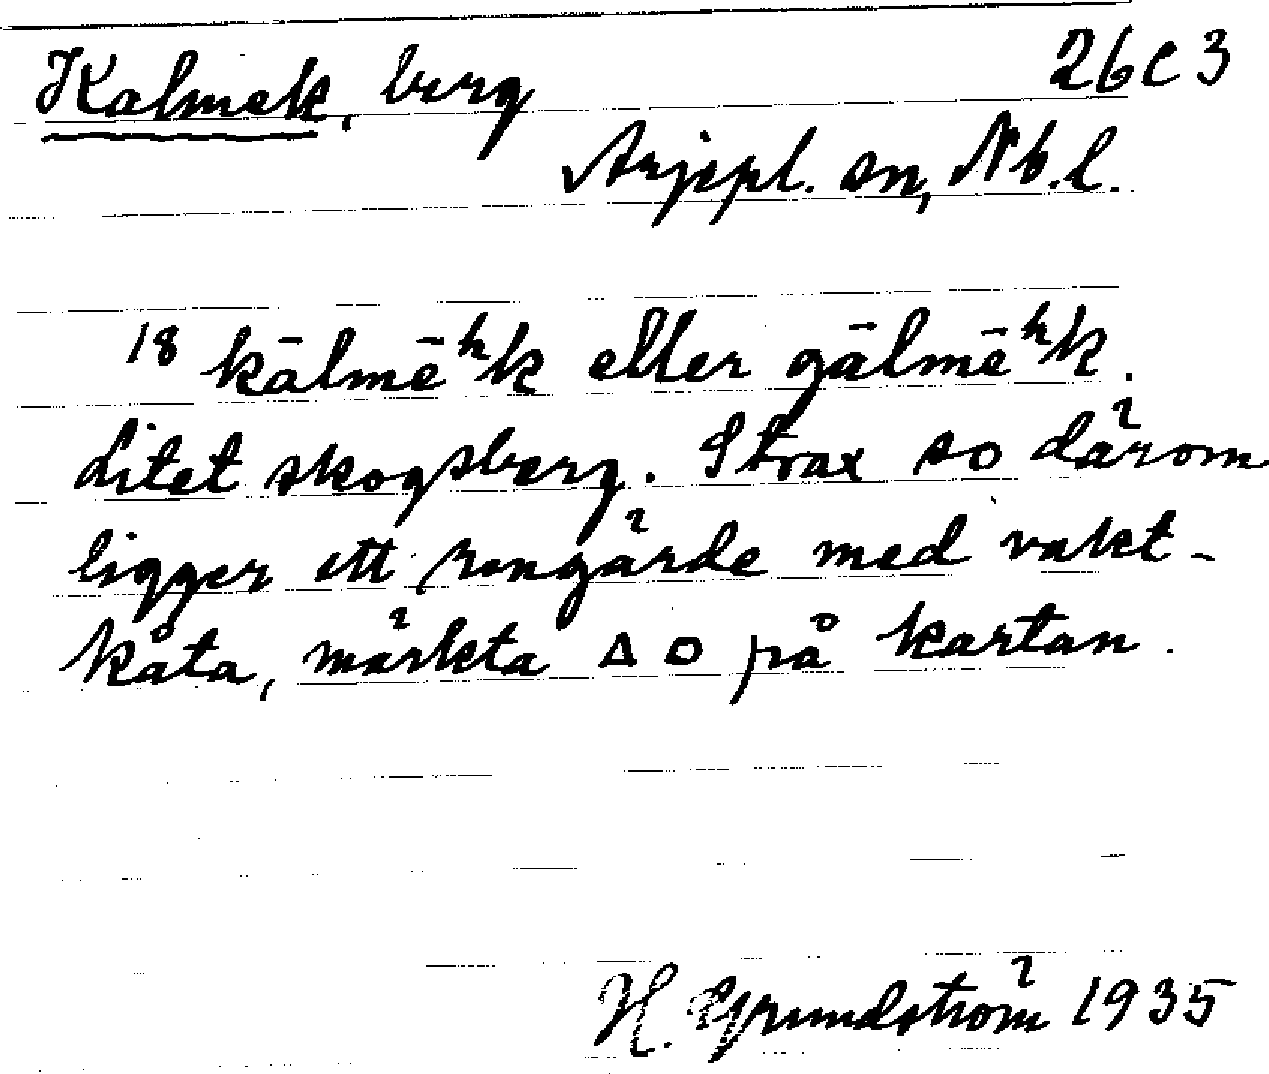 Kalmek, berg 26c3
Arjepl. sn, Nb.l.
18 kālmēʰk eller gālmēʰk.
Litet skogsberg. Strax so därom
ligger ett rengärde med vakt-
kåta, märkta △ □ på kartan.
H. Grundström 1935